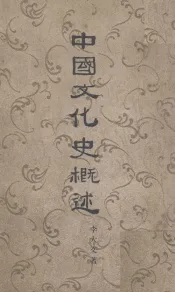 中國文化史概述